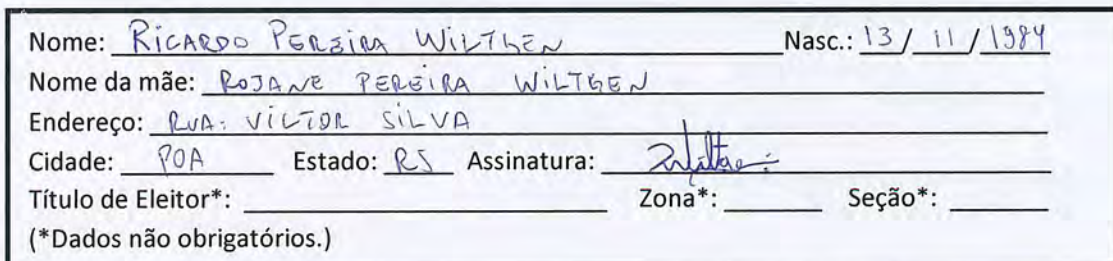 Nome: RICARDO PEREIRA WILTGEN Nasc.: 13 / 11 / 1984
Nome da mãe: ROJANE PEREIRA WILTGEN
Endereço: RUA: VICTOR SILVA
Cidade: POA Estado: RS Assinatura:
Título de Eleitor*: Zona*: Seção*:
(*Dados não obrigatórios.)